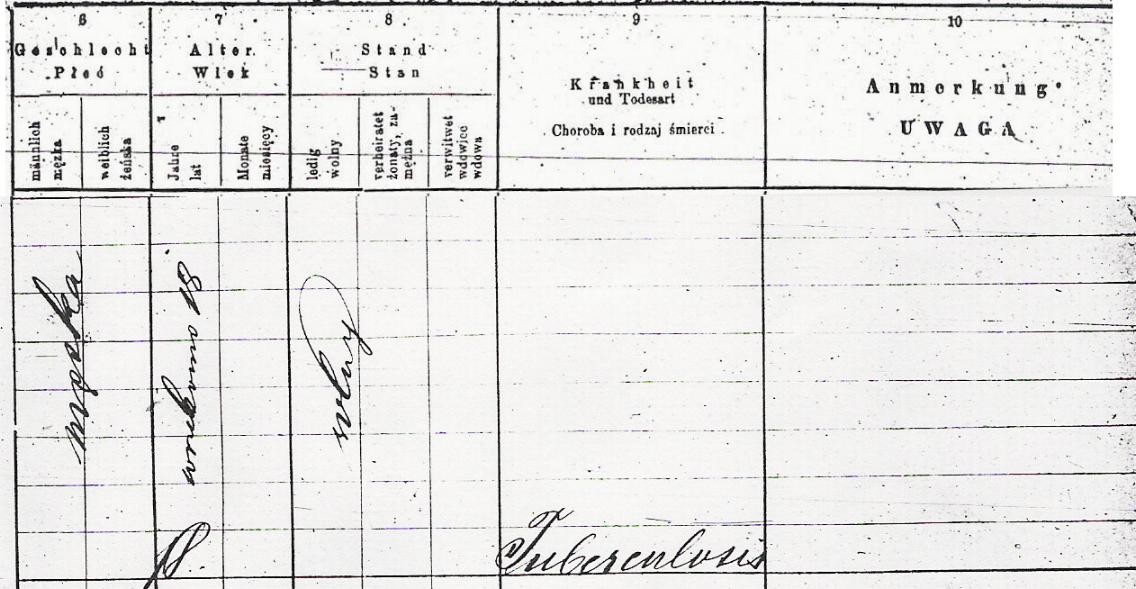 6
7
8
9
10
Geschlecht
Płeć
Alter.
Wiek
Stand
Stan
Krankheit
und Todesart
Choroba i rodzaj śmierci
Anmerkung
UWAGA
männlich
męzka
weiblich
żeńska
Jahre
lat
Monate
miesięcy
ledig
wolny
verheiratet
żonaty, za-
mężna
verwitwet
wdowiec
wdowa
męska
18
wolny
18.
Tuberculosis